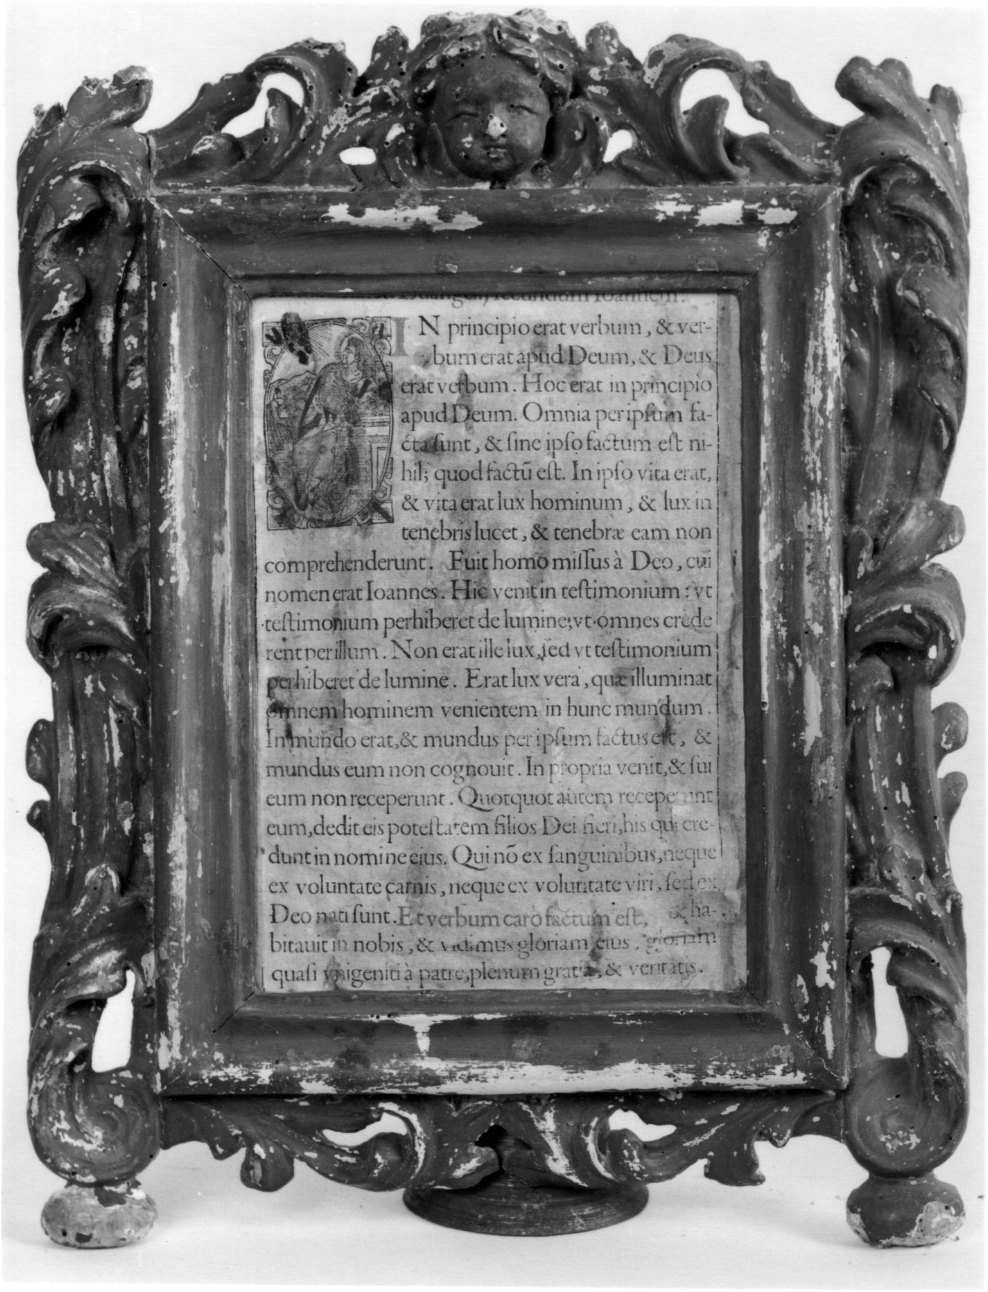 Euangelij secundum Ioannem.
IN principio erat verbum, & ver-
bum erat apud Deum, & Deus
erat verbum. Hoc erat in principio
apud Deum. Omnia per ipsum fa-
cta sunt, & sine ipso factum est ni-
hil; quod factũ est. In ipso vita erat,
& vita erat lux hominum, & lux in
tenebris lucet, & tenebræ eam non
comprehenderunt. Fuit homo missus à Deo, cui
nomen erat Ioannes. Hic venit in testimonium: vt
testimonium perhiberet de lumine; vt omnes crede
rent per illum. Non erat ille lux, sed vt testimonium
perhiberet de lumine. Erat lux vera, quæ illuminat
omnem hominem venientem in hunc mundum.
In mundo erat, & mundus per ipsum factus est, &
mundus eum non cognouit. In propria venit, & sui
eum non receperunt. Quotquot autem receperunt
eum, dedit eis potestatem filios Dei fieri, his qui cre-
dunt in nomine eius. Qui nõ ex sanguinibus, neque
ex voluntate carnis, neque ex voluntate viri, sed ex
Deo nati sunt. Et verbum caro factum est, & ha-
bitauit in nobis, & vidimus gloriam eius, gloriam
quasi vnigeniti à patre, plenum gratiæ, & veritatis.